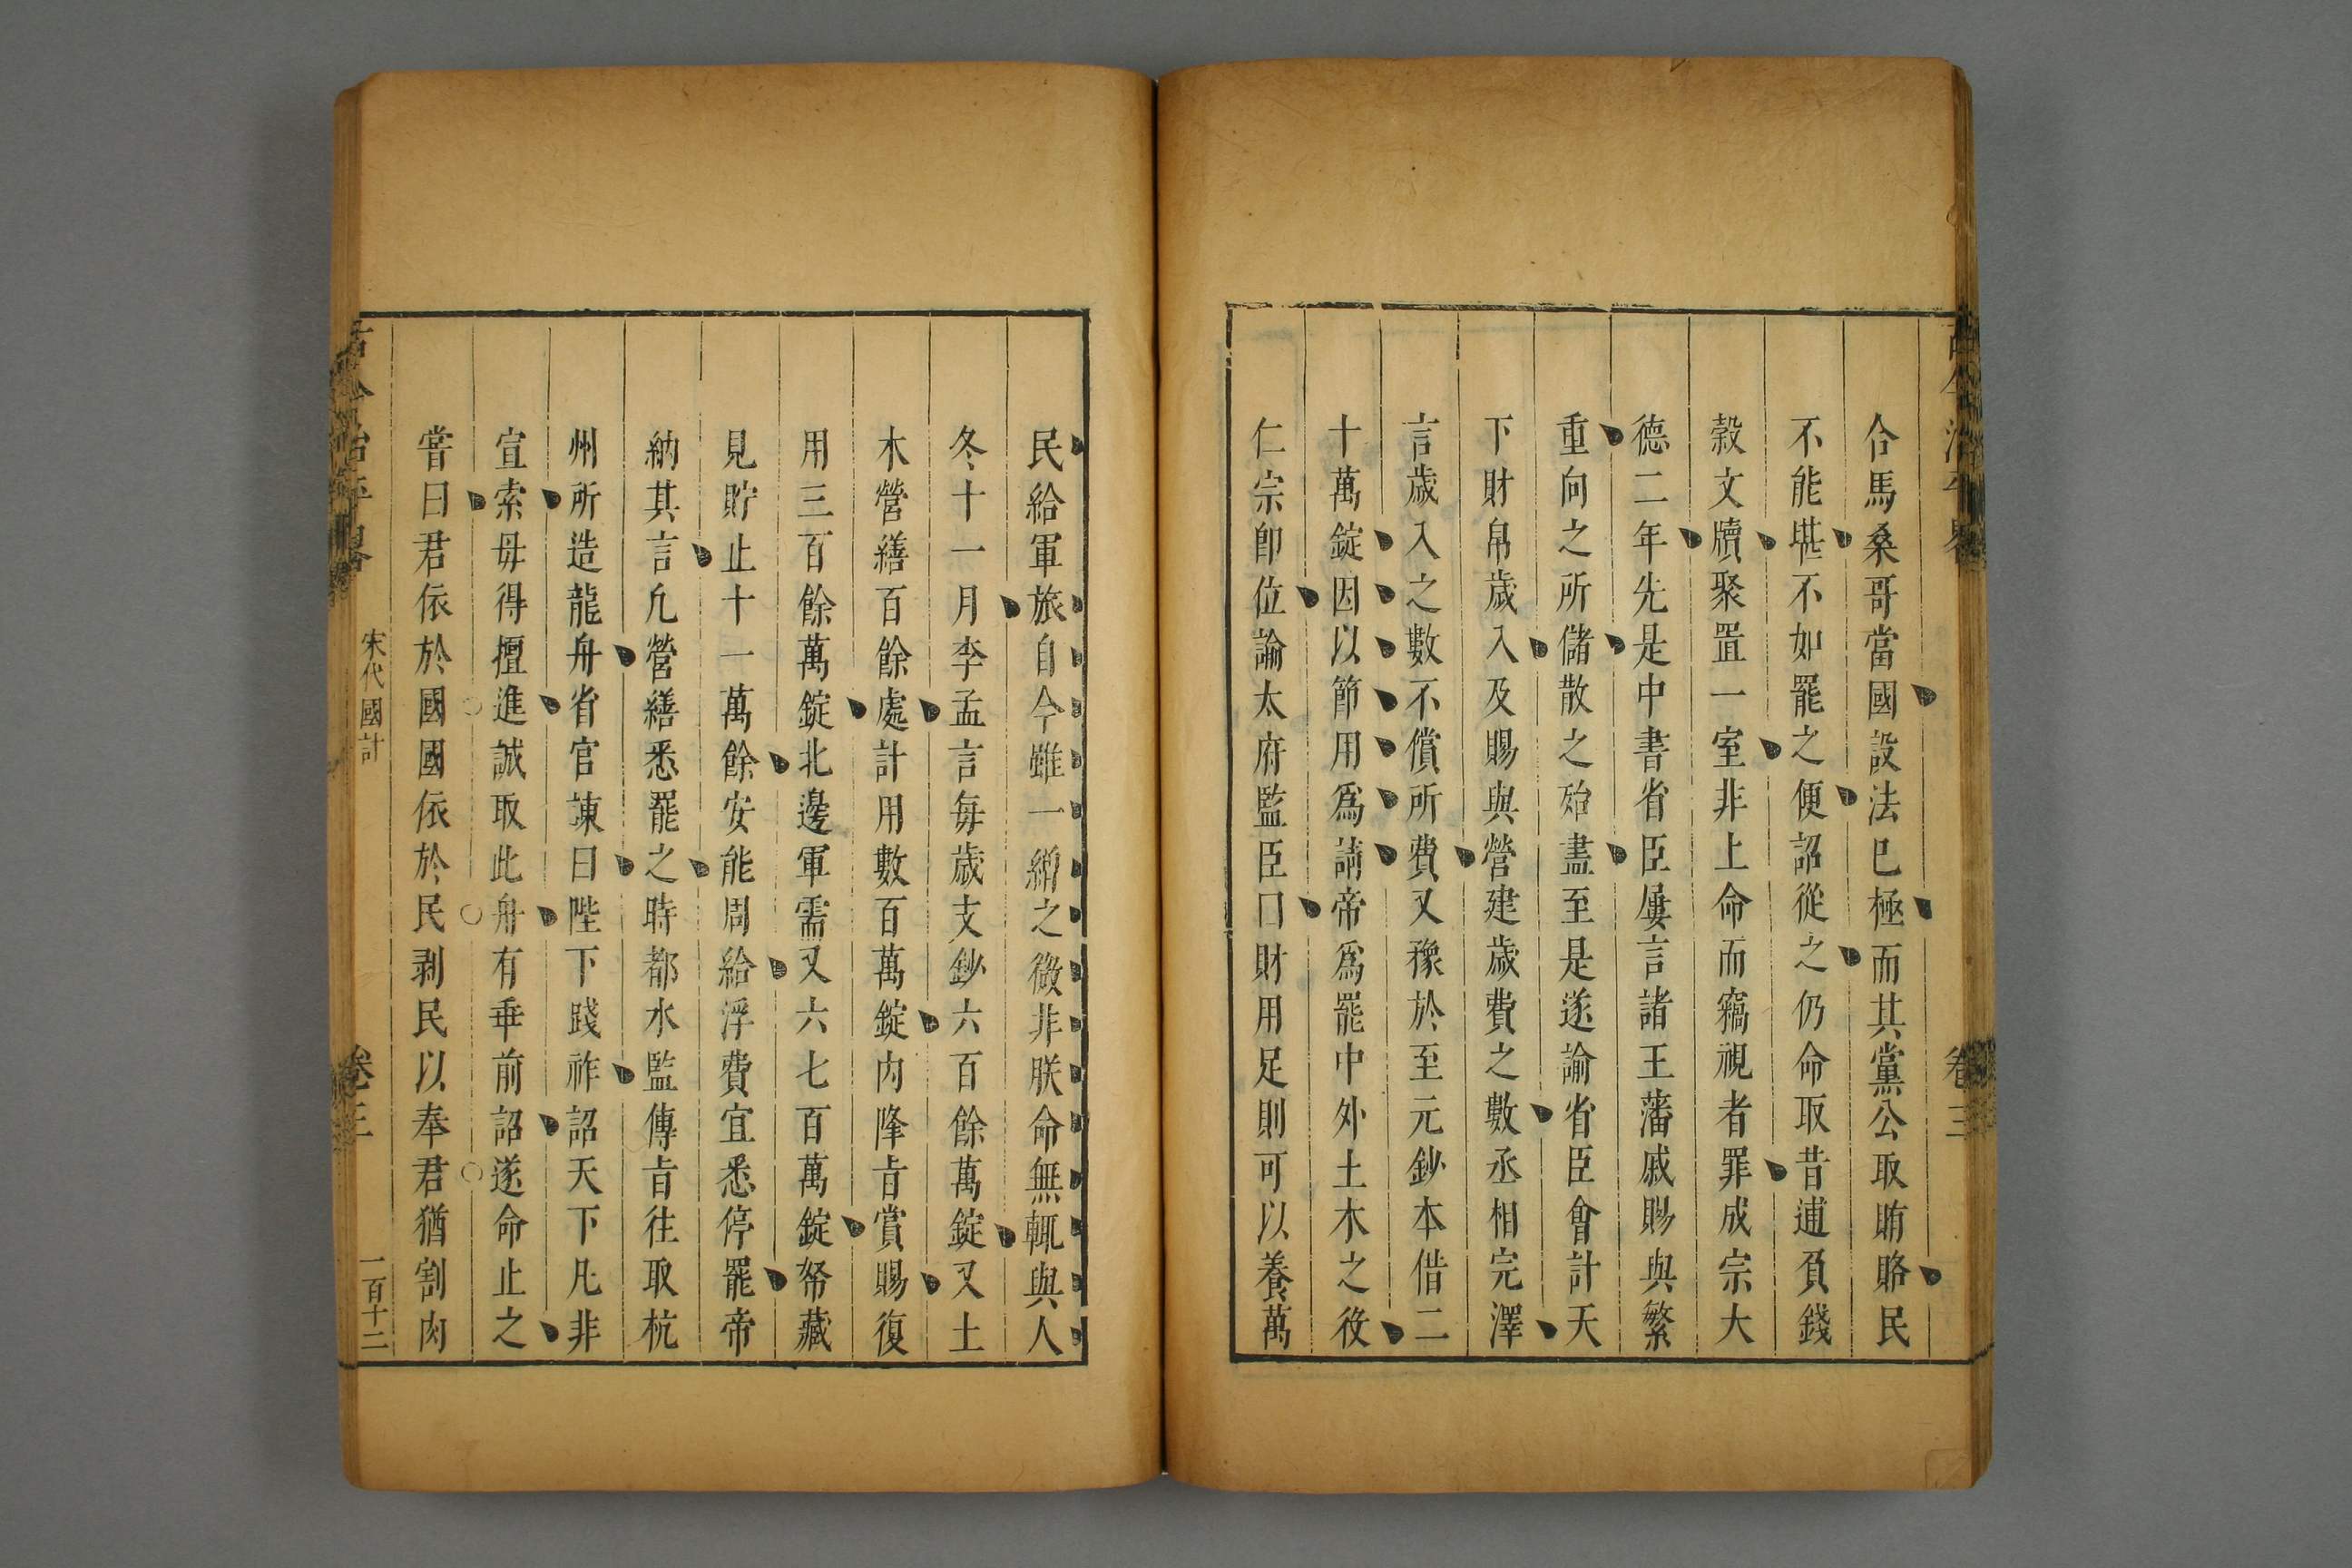 合馬桑哥當國設法已極而其黨公取賄賂民
不能堪不如罷之便詔從之仍命取昔逋負錢
穀文牘聚置一室非上命而竊視者罪成宗大
德二年先是中書省臣屢言諸王藩戚賜與繁
重向之所儲散之殆盡至是遂諭省臣會計天
下財帛歲入及賜與營建歲費之數丞相完澤
言歲入之數不償所費又豫於至元鈔本借二
十萬錠因以節用爲請帝爲罷中外土木之役
仁宗卽位諭太府監臣囗財用足則可以養萬
民給軍旅自今雖一繒之微非朕命無輒與人
冬十一月李孟言每歲支鈔六百餘萬錠又土
木營繕百餘處計用數百萬錠內降旨賞賜復
用三百餘萬錠北邊軍需又六七百萬錠帑藏
見貯止十一萬餘安能周給浮費宜悉停罷帝
納其言凢營繕悉罷之時都水監傳旨往取杭
州所造龍舟省官諫曰陛下踐祚詔天下凡非
宣索毋得擅進誠取此舟有乖前詔遂命止之
嘗曰君依於國國依於民剥民以奉君猶割肉
古今治平畧
宋代國計
卷三
一百十二